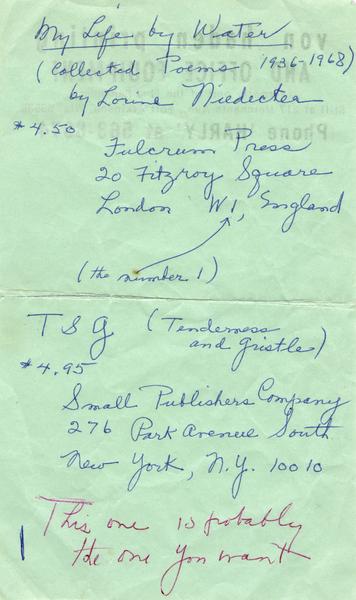 My Life by Water
(Collected Poems 1936-1968)
by Lorine Niedecker
$4.50
Fulcrum Press
20 Fitzroy Square
London W1, England
(the number 1)
T & G (Tenderness
and gristle)
$4.95
Small Publishers Company
276 Park Avenue South
New York, N.Y. 10010
This one is probably
the one you want